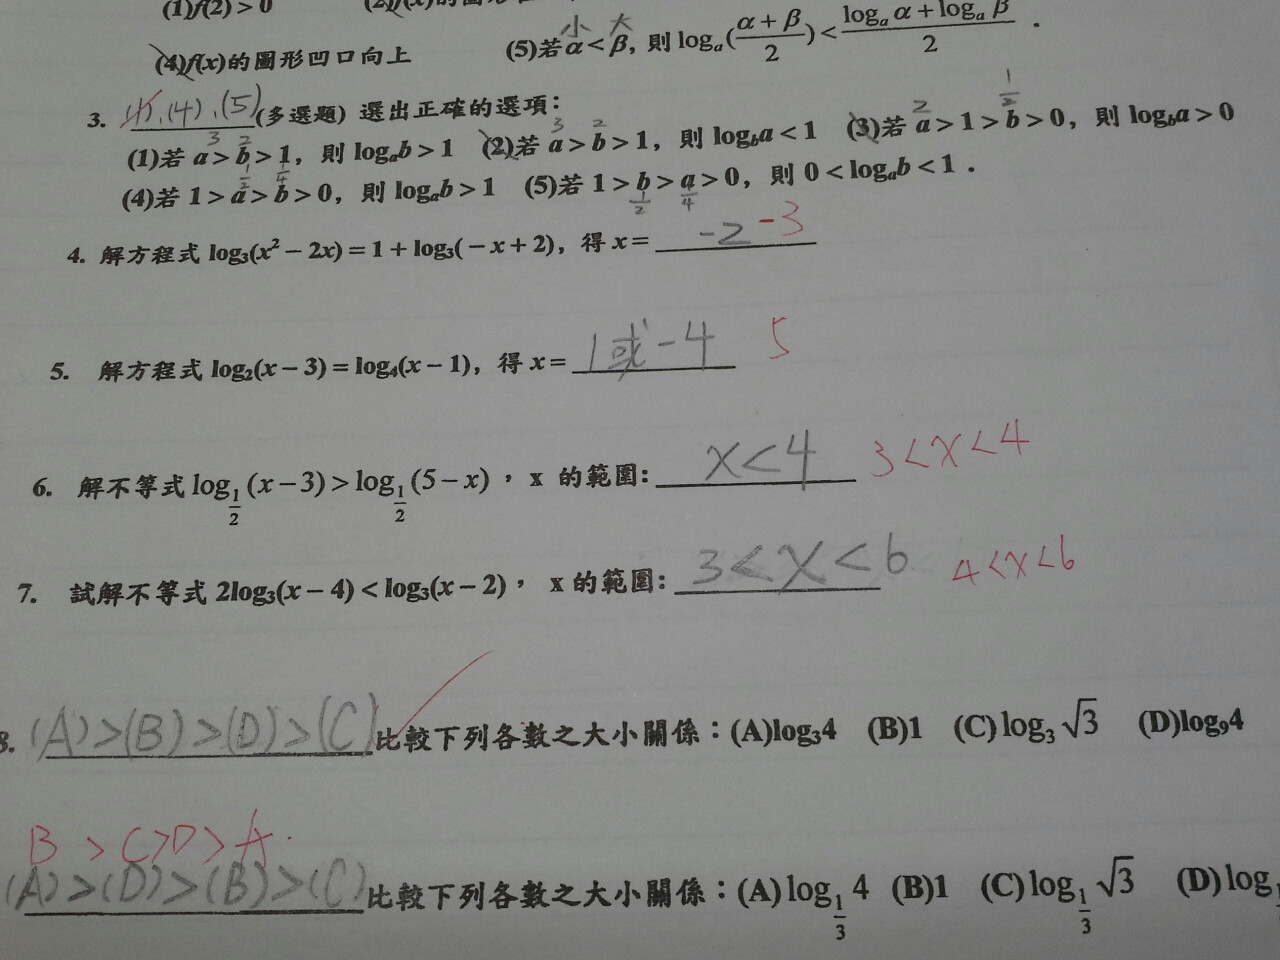 (1)f(2) > 0
(4)f(x)的圖形凹口向上 (5)若 α < β, 則 logₐ((α + β)/2) < (logₐ α + logₐ β)/2 .
小 大
3. (1)、(4)、(5) (多選題) 選出正確的選項：
(1)若 a > b > 1, 則 logₐb > 1 (2)若 a > b > 1, 則 log_b a < 1 (3)若 a > 1 > b > 0, 則 log_b a > 0
3 2 3 2 2 1/2
(4)若 1 > a > b > 0, 則 logₐb > 1 (5)若 1 > b > a > 0, 則 0 < logₐb < 1．
1/2 1/4 1/2 1/4
4. 解方程式 log₃(x² − 2x) = 1 + log₃(− x + 2), 得 x = -2 -3
5. 解方程式 log₂(x − 3) = log₄(x − 1), 得 x = 1或-4 5
6. 解不等式 log_{1/2} (x − 3) > log_{1/2} (5 − x) ， x 的範圍: x<4 3<x<4
7. 試解不等式 2log₃(x − 4) < log₃(x − 2) ， x 的範圍: 3<x<6 4<x<6
8. (A)>(B)>(D)>(C) 比較下列各數之大小關係：(A)log₃4 (B)1 (C) log₃ √3 (D)log₉4
B > C>D > A.
(A)>(D)>(B)>(C) 比較下列各數之大小關係：(A) log_{1/3} 4 (B)1 (C) log_{1/3} √3 (D) log